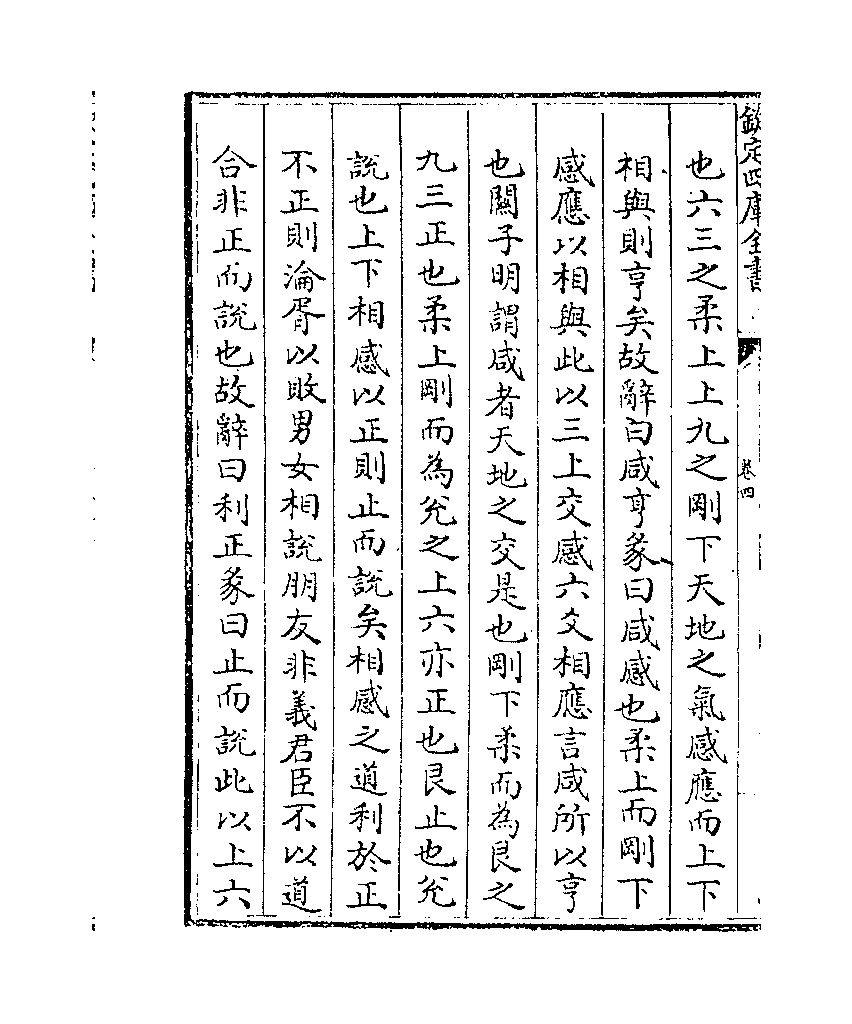 欽定四庫全書
卷四
也六三之柔上上九之剛下天地之氣感應而上下
相與則亨矣故辭曰咸亨彖曰咸感也柔上而剛下
感應以相與此以三上交感六爻相應言咸所以亨
也關子明謂咸者天地之交是也剛下柔而為艮之
九三正也柔上剛而為兊之上六亦正也艮止也兊
說也上下相感以正則止而說矣相感之道利於正
不正則淪胥以敗男女相說朋友非義君臣不以道
合非正而說也故辭曰利正彖曰止而說此以上六